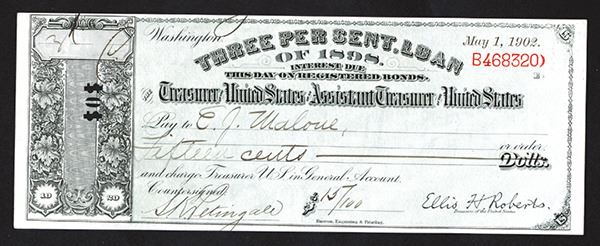 Washington, May 1, 1902.
THREE PER CENT. LOAN
OF 1898.
B468320
INTEREST DUE
THIS DAY ON REGISTERED BONDS.
Treasurer of the United States or Assistant Treasurer of the United States
Pay to E. J. Malone,
or order.
Fifteen cents Dolls.
and charge Treasurer U.S. in General Account.
Countersigned
$ 15/100
Ellis H Roberts.
Treasurer of the United States.
Bureau, Engraving & Printing.
$0$
10 20